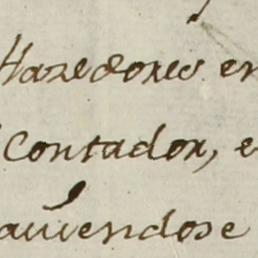 Hazedores en
Contador, e
auiendose